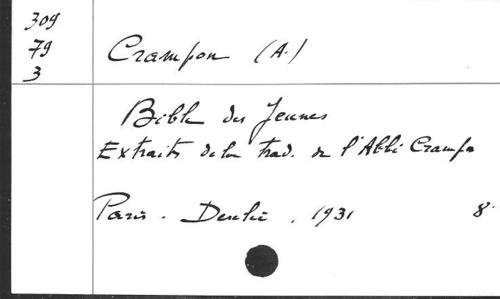 309
79
3
Crampon (A.)
Bible des Jeunes
Extraits de la trad. de l'Abbé Crampon
Paris. Desclée. 1931 8°